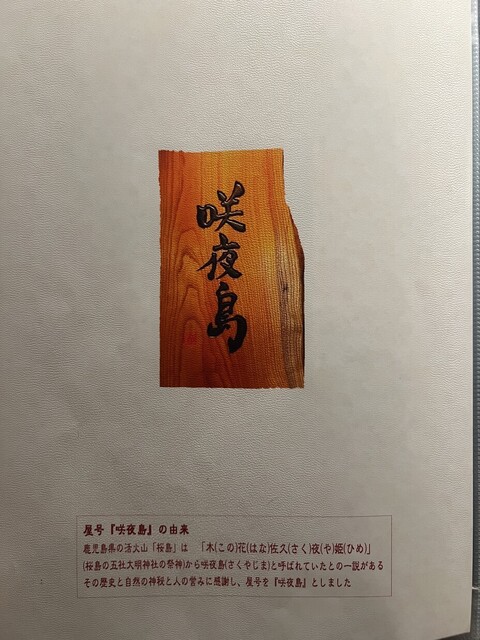 咲夜島
屋号『咲夜島』の由来
鹿児島県の活火山「桜島」は 「木(この)花(はな)佐久(さく)夜(や)姫(ひめ)」
(桜島の五社大明神社の祭神)から咲夜島(さくやじま)と呼ばれていたとの一説がある
その歴史と自然の神秘と人の営みに感謝し、屋号を『咲夜島』としました